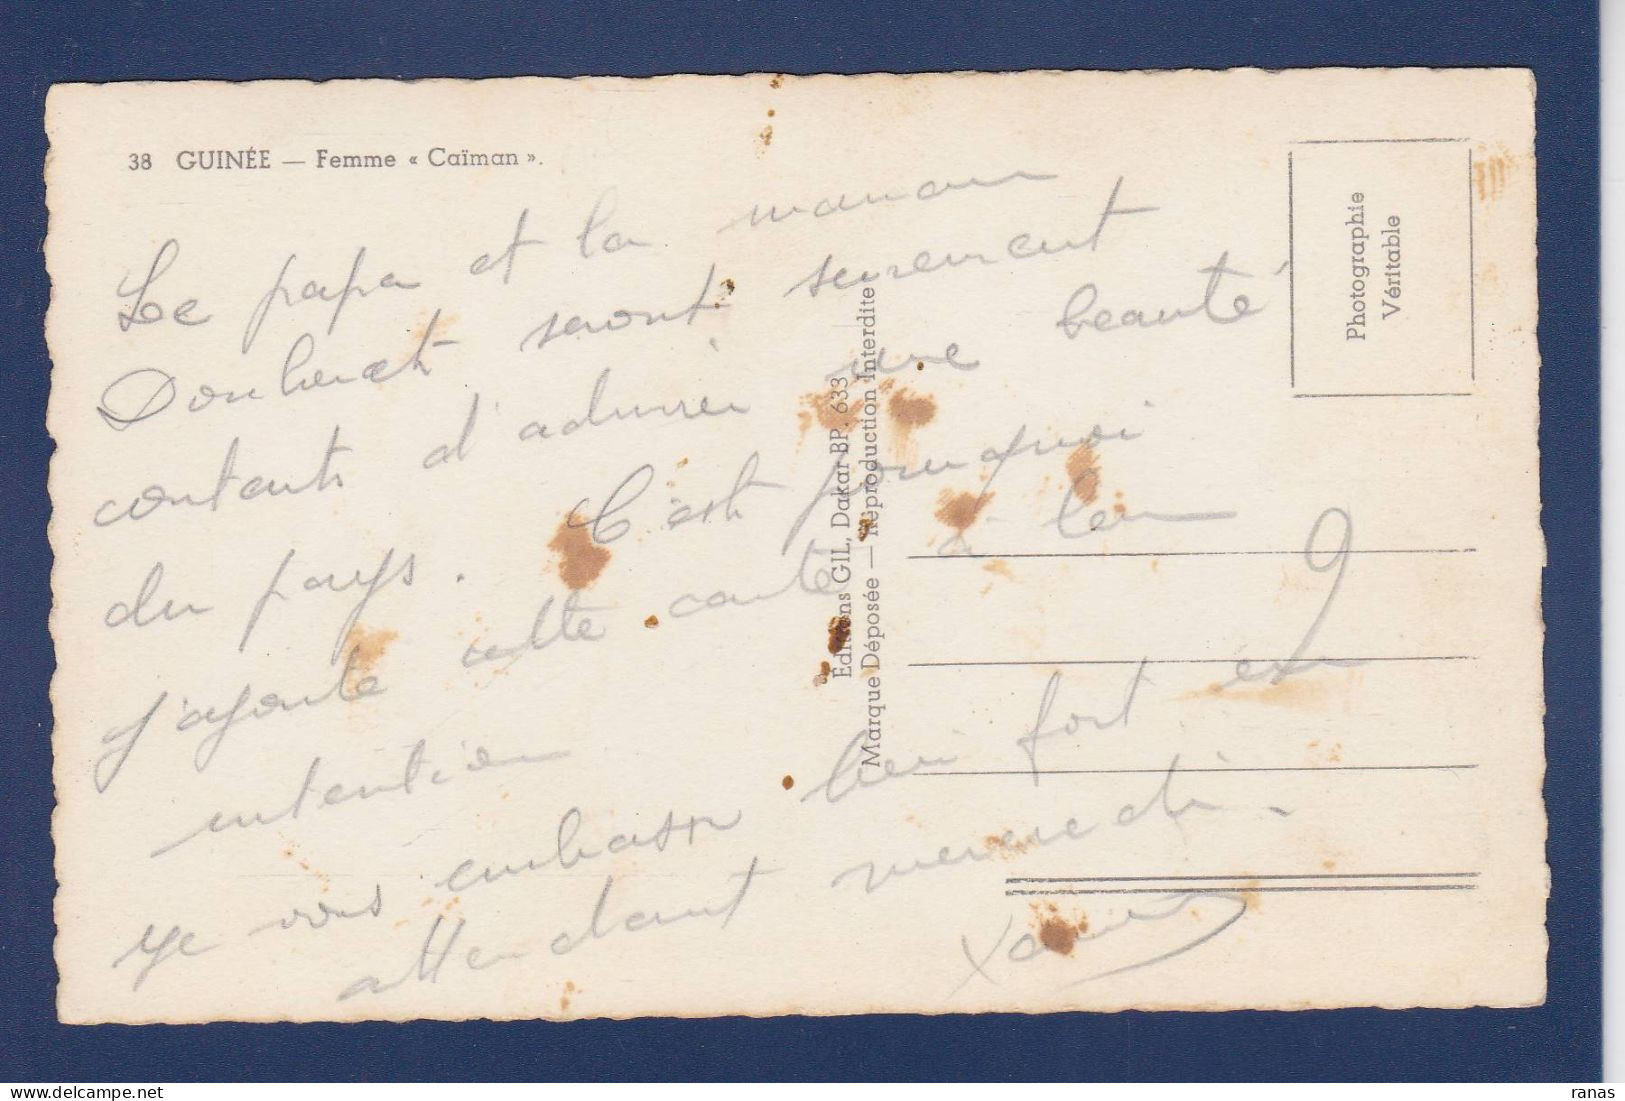 38 GUINÉE — Femme « Caïman ».
Le papa et la maman
seront surement
contents d'admirer une beauté
du pays. C'est pourquoi
j'ajoute cette carte à leur
intention
je vous embrasse bien fort en
attendant mercredi.
Xavier
Editions GIL, Dakar BP. 633
Marque Déposée — Reproduction Interdite
Photographie
Véritable
ranas